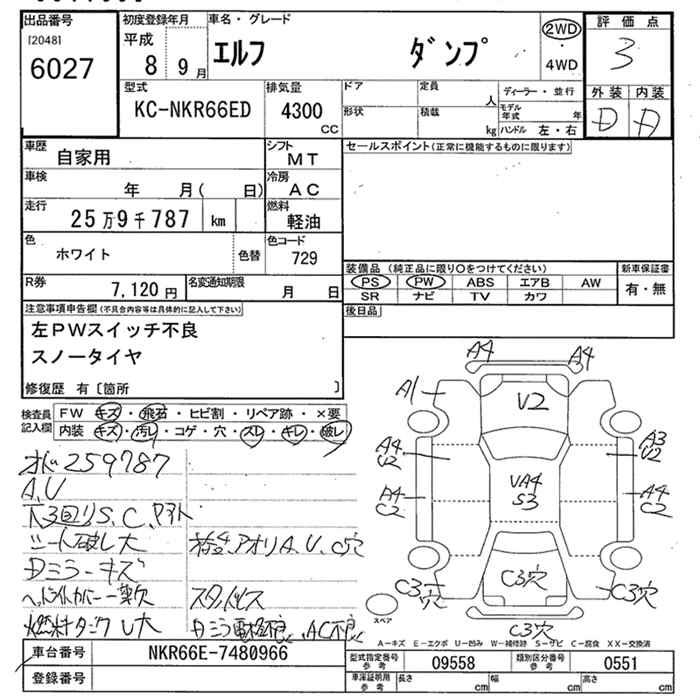 出品番号
[2048]
6027
初度登録年月
平成
8 9月
車名・グレード
エルフ ダンプ
2WD
・
4WD
評価点
3
外装 内装
D D
型式
KC-NKR66ED
排気量
4300
CC
ドア
定員
人
形状
積載
kg
ディーラー・並行
モデル年式 年
ハンドル 左・右
車歴
自家用
シフト
MT
車検
年 月( 日)
冷房
AC
走行
25万9千787 km
燃料
軽油
色
ホワイト
色替
色コード
729
R券
7,120円
名変通知期限
月 日
セールスポイント(正常に機能するものに限ります)
装備品(純正品に限り○をつけてください)
PS PW ABS エアB AW
SR ナビ TV カワ
新車保証書
有・無
後日品
注意事項申告欄(不具合内容等は具体的に記入して下さい)
左PWスイッチ不良
スノータイヤ
修復歴 有〔箇所 〕
検査員記入欄
FW キズ・飛石・ヒビ割・リペア跡・×要
内装 キズ・汚レ・コゲ・穴・スレ・キレ・破レ
259787
A、U
下3回りS、C、
シート破し大
アオリA、U、C穴
Dミラーキズ
スタッドレス
AC不良
車台番号
NKR66E-7480966
登録番号
A4 A4
A1
V2
A4
U2
A3
U2
A4
C2
VA4
S3
A4
C2
C3穴
C3穴
C3穴
C3穴
スペア
A-キズ E-エクボ U-凹み W-補修跡 S-サビ C-腐食 XX-交換済
型式指定番号
参考
09558
類別区分番号
参考
0551
車庫証明用
参考
長さ cm
幅 cm
高さ cm